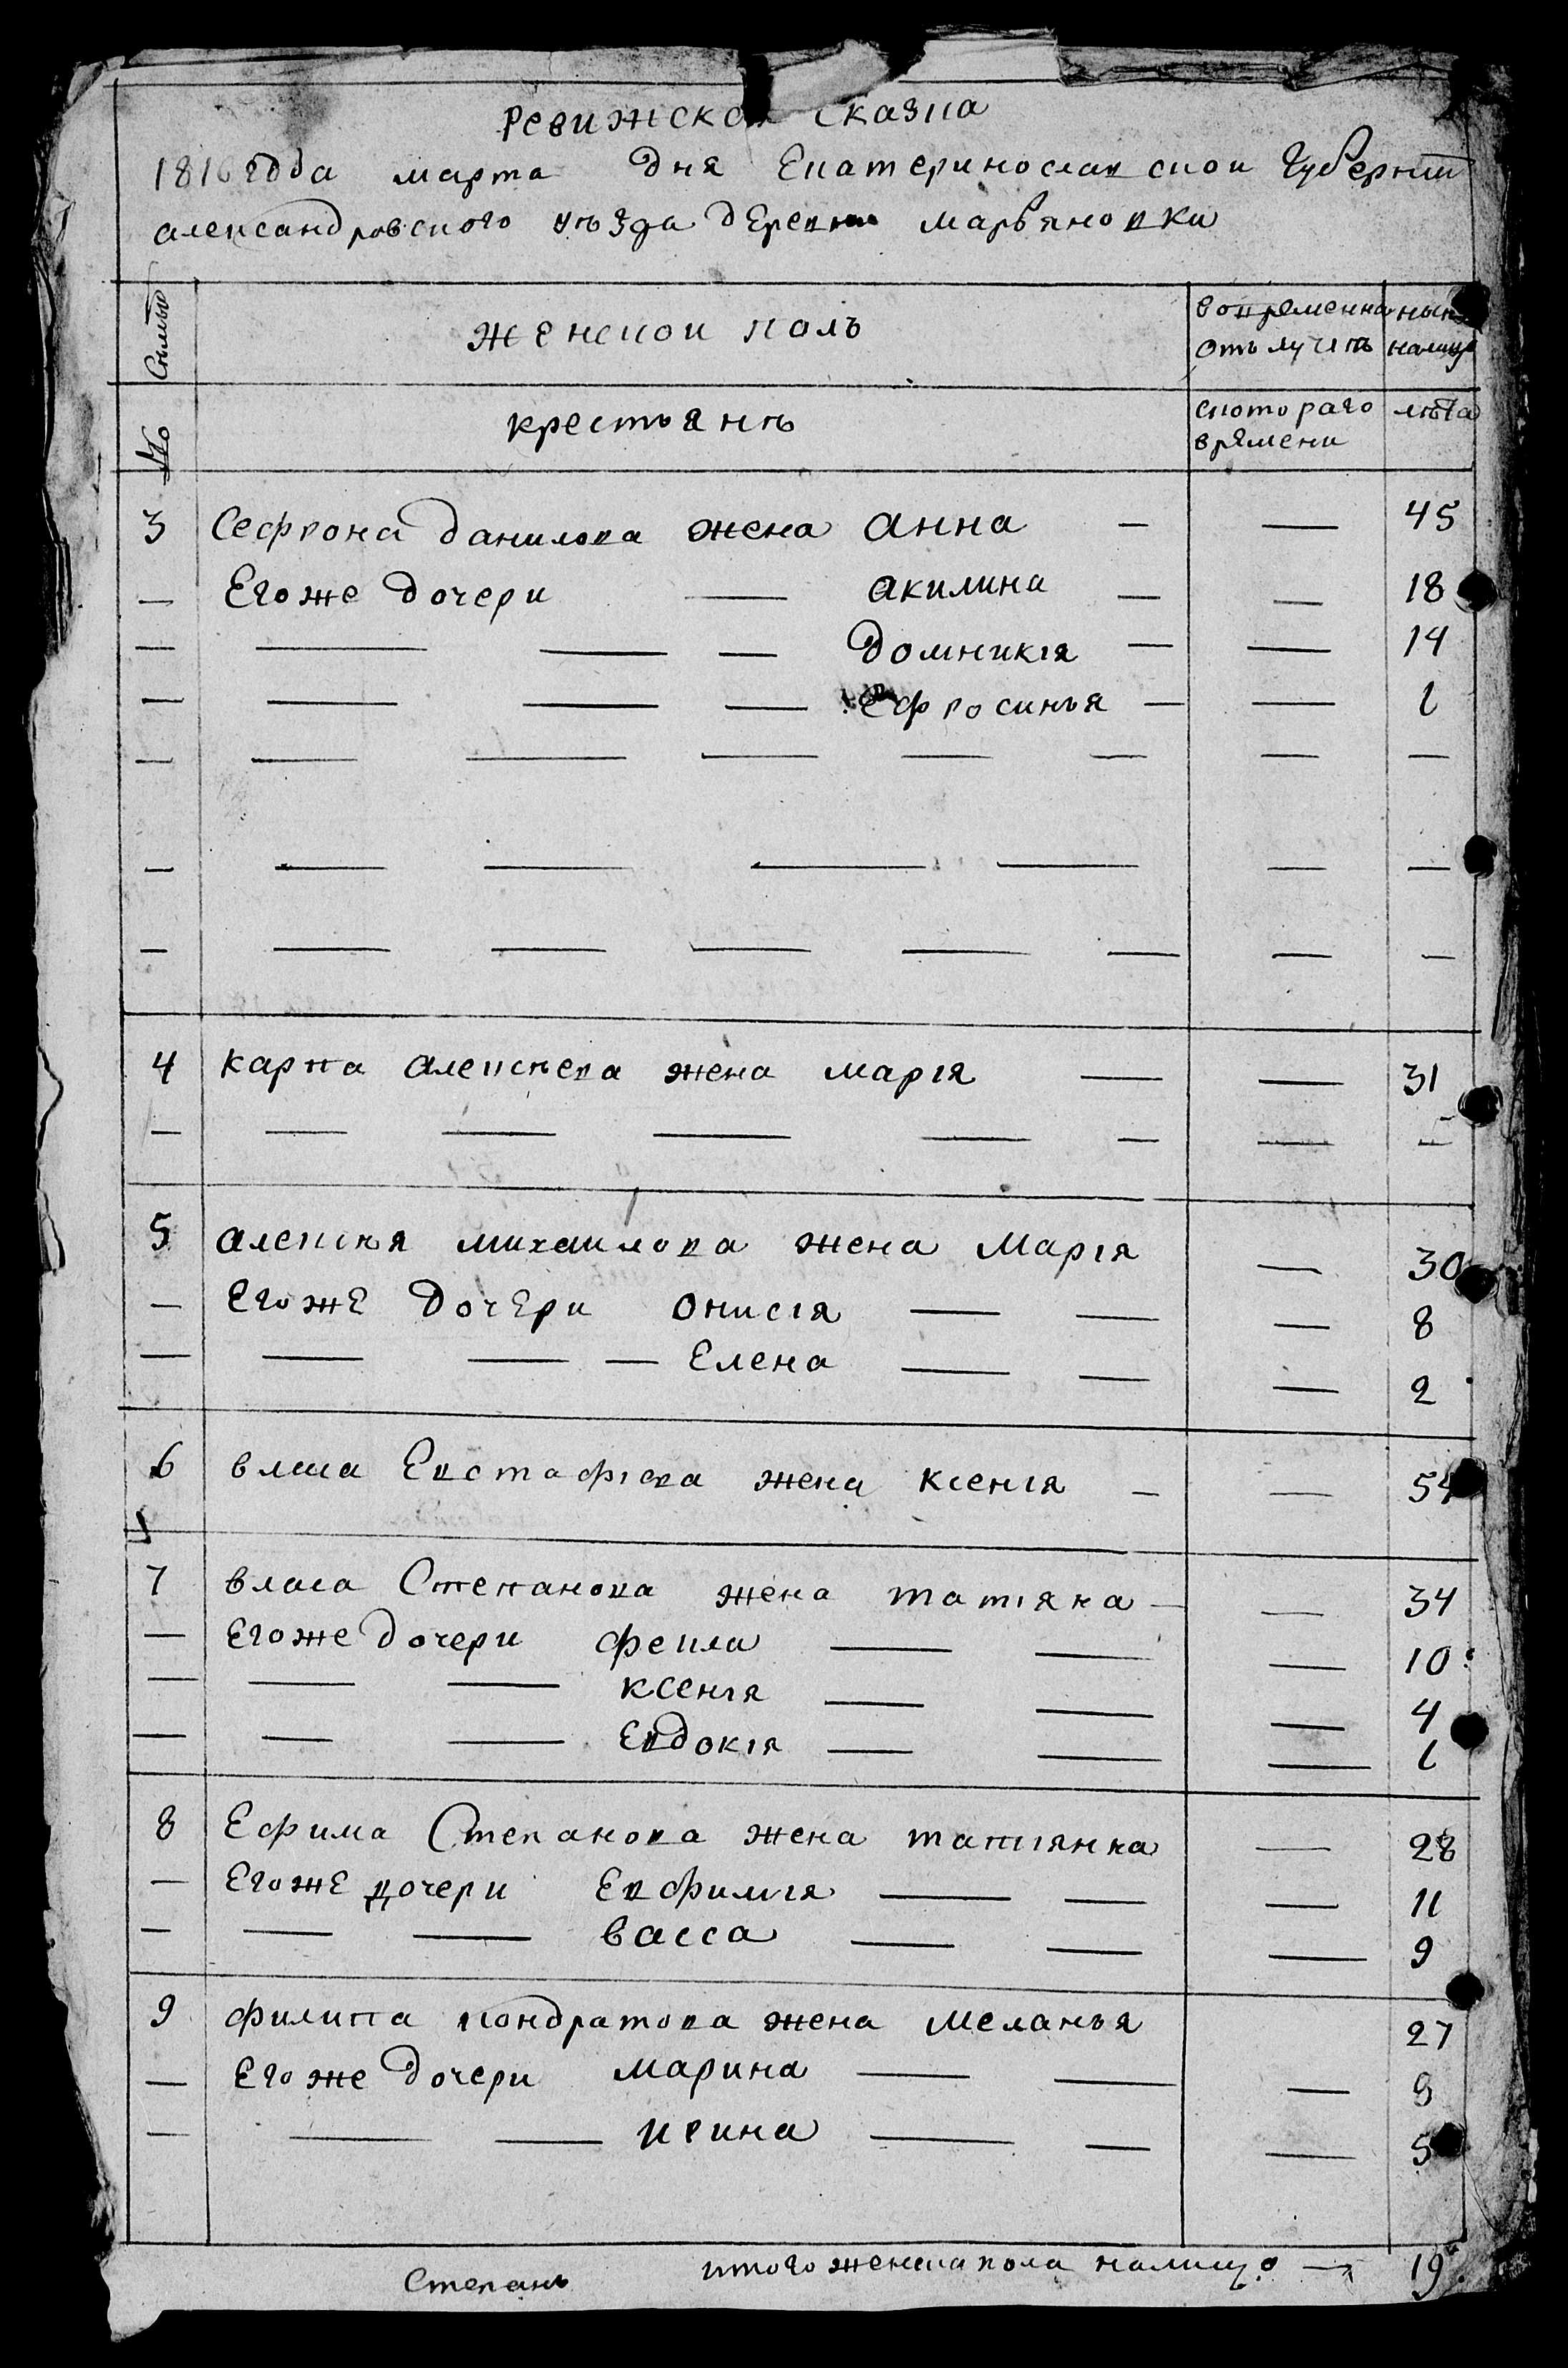 Ревижская Сказка
1816 года марта дня Екатеринославской Губернии
александровского уѣзда дЕревни марьяновки
Семьи женской полъ вовременно нынѣ
отълучкѣ налицо
№ крестьянѣ скотораго лѣта
врямени
3 Сефрона данилова жена анна — — 45
— Егоже дочери — акилина — — 18
— — — — домникія — — 14
— — — — Ефросинья — — 1
— — — — — — — —
— — — — — — —
— — — — — — — —
4 карпа алексѣева жена марія — — 31
— — — — — — — —
5 алексѣя михаилова жена Марія — 30
— ЕгожЕ дочЕри онисія — — — 8
— — — — Елена — — — 2
6 власа Евстафіева жена ксенія — — 54
7 власа Степанова жена татіяна — — 34
— Егоже дочери фекла — — — 10
— — — ксенія — — — 4
— — — Евдокія — — — 1
8 Ефима Степанова жена татіянна — 28
— ЕгожЕ дочери Евфимія — — — 11
— — — васса — — — 9
9 филипа кондратова жена меланья 27
— Егоже дочери марина — — — 9
— — — ирина — — — 5
итого женска пола налицо — 19.
Степанъ